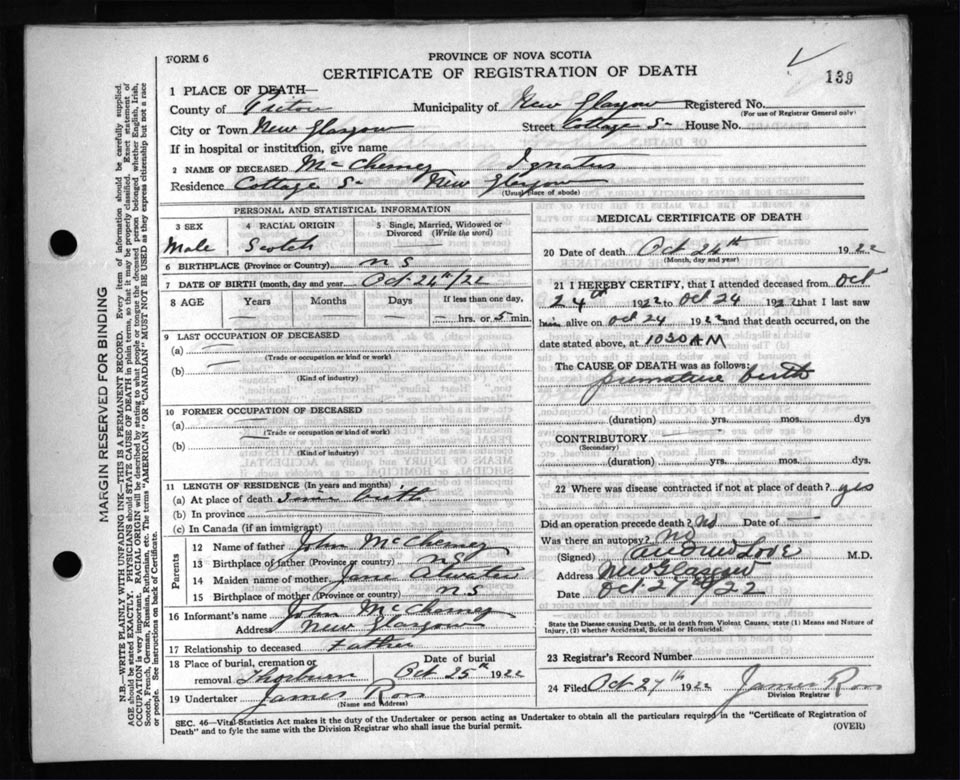 FORM 6
PROVINCE OF NOVA SCOTIA
CERTIFICATE OF REGISTRATION OF DEATH
139
1 PLACE OF DEATH—
County of Pictou Municipality of New Glasgow Registered No.
(For use of Registrar General only)
City or Town New Glasgow Street Cottage St House No.
If in hospital or institution, give name
2 NAME OF DECEASED Ignatus
Residence Cottage St New Glasgow
(Usual place of abode)
PERSONAL AND STATISTICAL INFORMATION
3 SEX 4 RACIAL ORIGIN 5 Single, Married, Widowed or Divorced (Write the word)
Male Scotch —
6 BIRTHPLACE (Province or Country) n S
7 DATE OF BIRTH (month, day and year) Oct 24th/22
8 AGE Years Months Days If less than one day,
— — — — hrs. or 5 min.
9 LAST OCCUPATION OF DECEASED
(a) —
(Trade or occupation or kind of work)
(b) —
(Kind of industry)
10 FORMER OCCUPATION OF DECEASED
(a) —
(Trade or occupation or kind of work)
(b) —
(Kind of industry)
11 LENGTH OF RESIDENCE (In years and months)
(a) At place of death Since birth
(b) In province
(c) In Canada (if an immigrant)
Parents
12 Name of father John
13 Birthplace of father (Province or country) n S
14 Maiden name of mother Jane
15 Birthplace of mother (Province or country) n S
16 Informant's name John
Address New Glasgow
17 Relationship to deceased Father
18 Place of burial, cremation or removal Thorburn
Date of burial Oct 25th 1922
19 Undertaker James Ross
(Name and Address)
MEDICAL CERTIFICATE OF DEATH
20 Date of death Oct 24th 1922
(Month, day and year)
21 I HEREBY CERTIFY, that I attended deceased from Oct
24th 1922 to Oct 24 1922 that I last saw
him alive on Oct 24 1922 and that death occurred, on the
date stated above, at 1030 AM
The CAUSE OF DEATH was as follows:
premature birth
(duration) yrs. mos. dys
CONTRIBUTORY
(Secondary)
(duration) yrs. mos. dys.
22 Where was disease contracted if not at place of death? yes
Did an operation precede death? No Date of —
Was there an autopsy? No
(Signed) Andrew Love M.D.
Address New Glasgow
Date Oct 27/22
State the Disease causing Death, or in death from Violent Causes, state (1) Means and Nature of
Injury, (2) whether Accidental, Suicidal or Homicidal.
23 Registrar's Record Number
24 Filed Oct 27th 1922 James Ross
Division Registrar
SEC. 46—Vital Statistics Act makes it the duty of the Undertaker or person acting as Undertaker to obtain all the particulars required in the "Certificate of Registration of
Death" and to fyle the same with the Division Registrar who shall issue the burial permit.
(OVER)
MARGIN RESERVED FOR BINDING
N.B.—WRITE PLAINLY WITH UNFADING INK—THIS IS A PERMANENT RECORD. Every item of information should be carefully supplied.
AGE should be stated EXACTLY. PHYSICIANS should STATE CAUSE OF DEATH in plain terms, so that it may be properly classified. Exact statement of
OCCUPATION is very important. RACIAL ORIGIN will be described by stating to what people or tongue the deceased person belonged whether English, Irish,
Scotch, French, German, Russian, Ruthenian, etc. The terms "AMERICAN" OR "CANADIAN" MUST NOT BE USED as they express citizenship but not a race
or people. See instructions on back of Certificate.